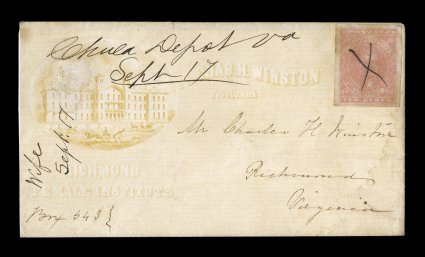 Chula Depot Va
Sept 17
H. WINSTON
President
POSTAGE
X
Mr Charles H. Winston
Richmond
Virginia
Wife
Sept. 17
RICHMOND
FEMALE INSTITUTE,
Box 648